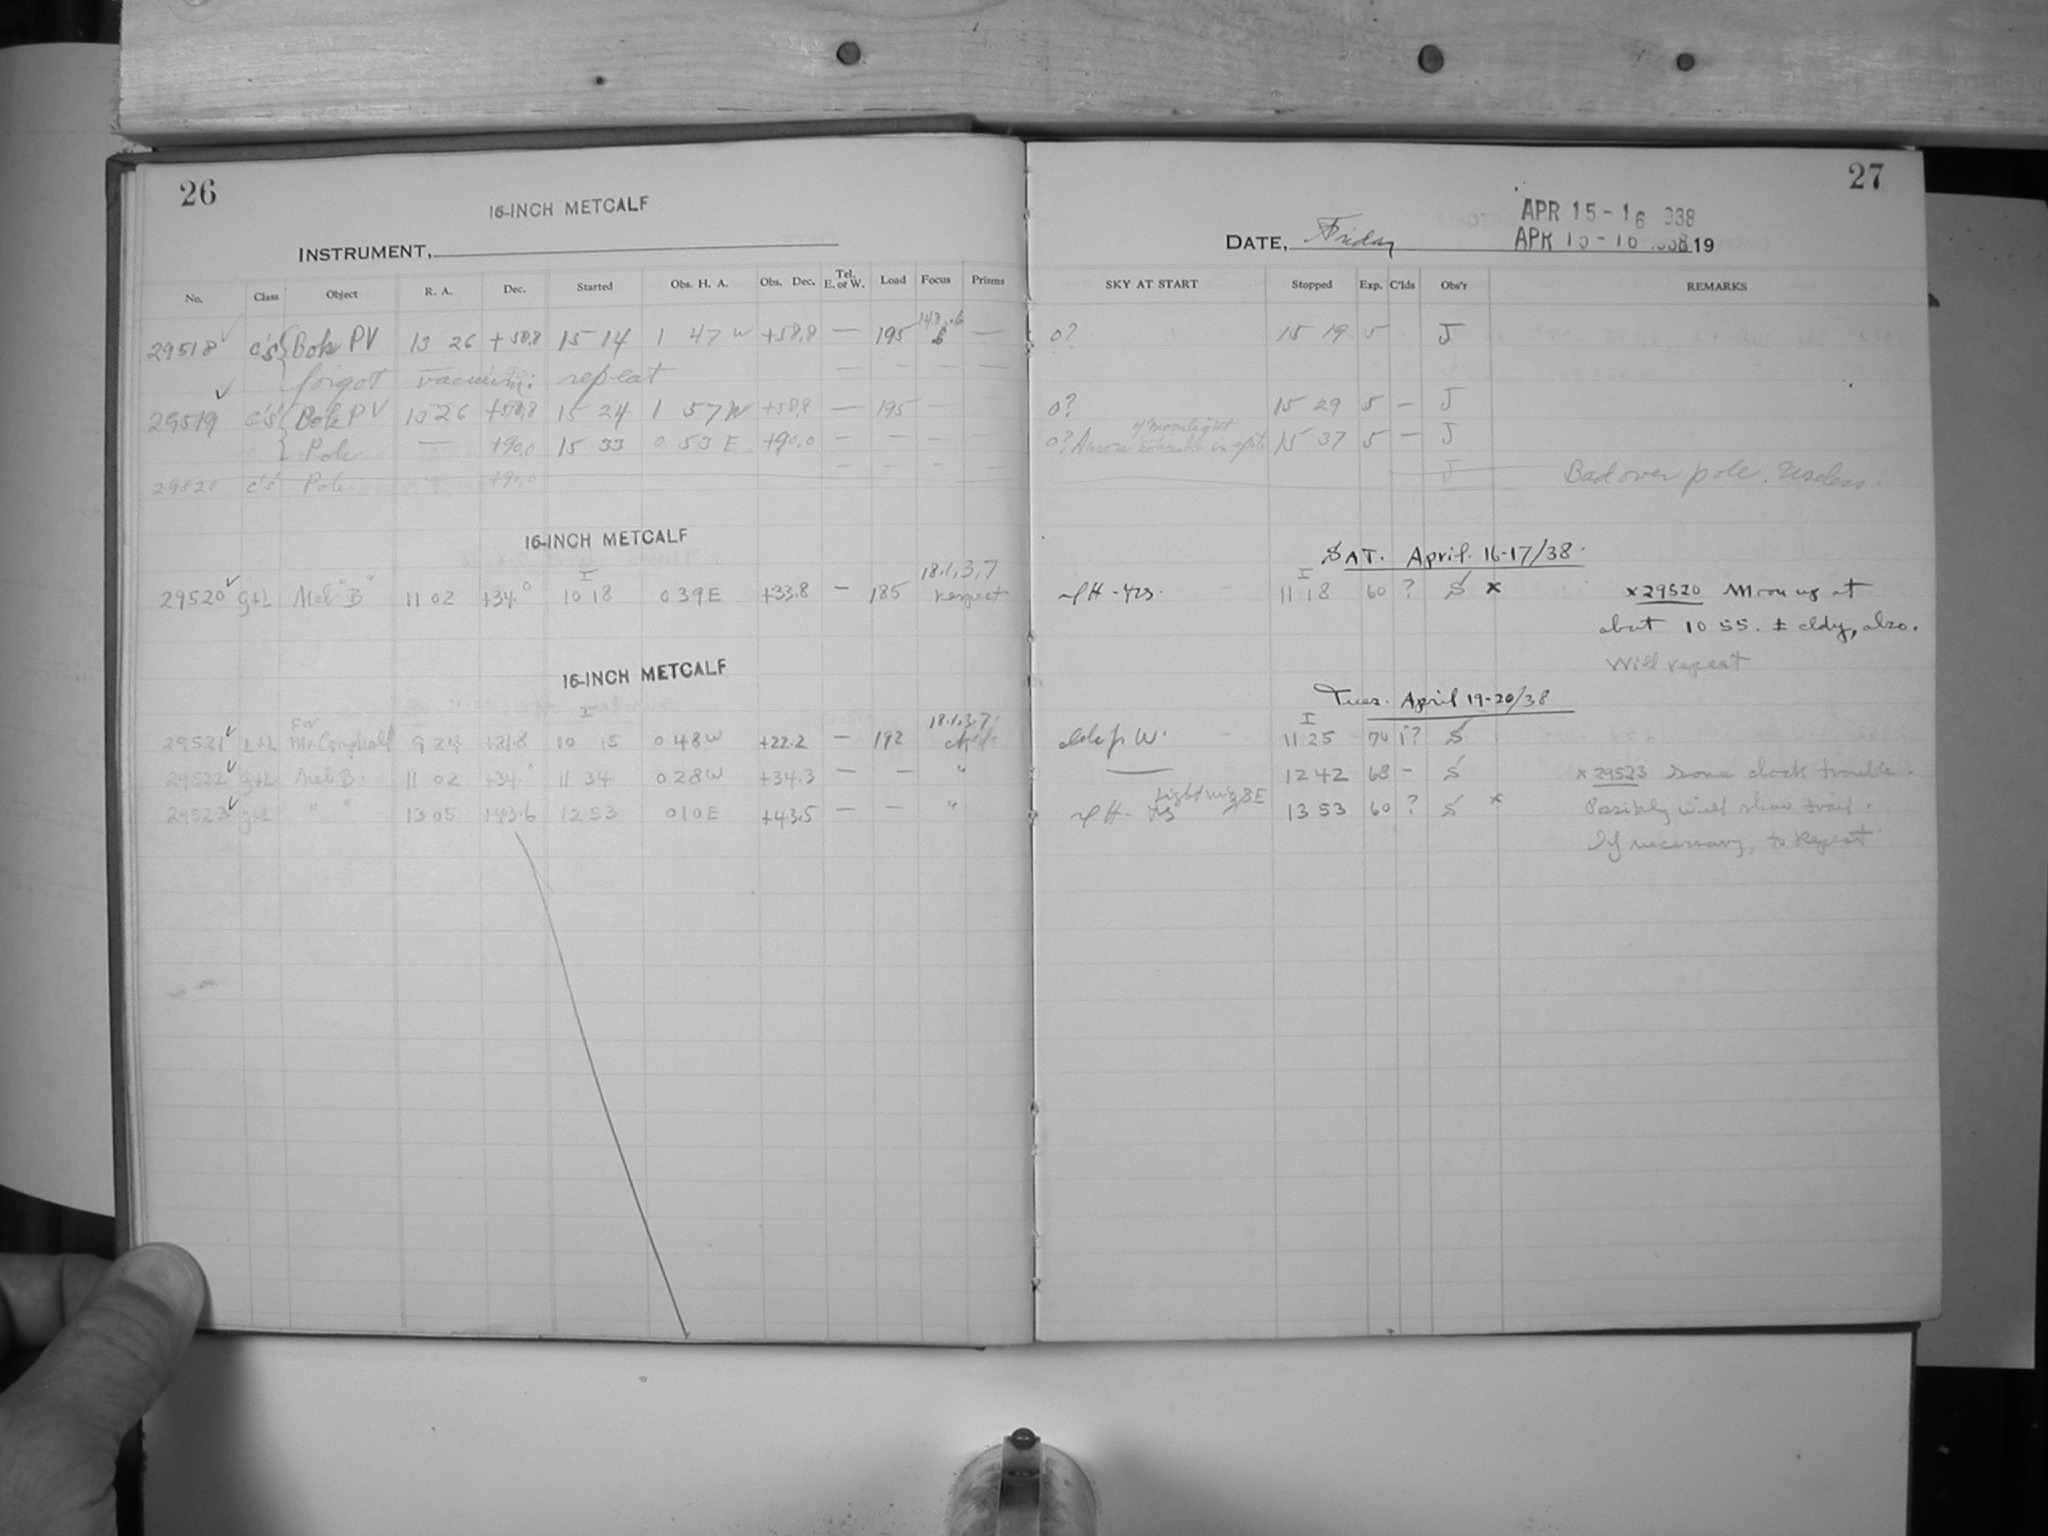 26
16-INCH METCALF
INSTRUMENT,
No. Class Object R. A. Dec. Started Obs. H. A. Obs. Dec. Tel. E. or W. Load Focus Prisms
29518 c's' Bok PV 13 26 +58.8 15 14 1 47 W +58.8 — 195 —
forgot vacuum: repeat — — — —
29519 c's' Bok PV 13 26 +58.8 15 24 1 57 W +58.8 — 195 — —
Pole — +90.0 15 33 0 53 E +90.0 — — — —
29520 c's' Pole — +90.0 — — — —
16-INCH METCALF
29520 g+L Mel "B" 11 02 +34.0 I 10 18 0 39 E +33.8 — 185 18.1,3,7 respect
16-INCH METCALF
29521 L+L For Mr. Campbell 9 24 +21.8 I 10 15 0 48 W +22.2 — 192 18.1,3,7.
29522 g+L Mel B. 11 02 +34.0 11 34 0 28 W +34.3 — — "
29523 g+L " " 13 05 +43.6 12 53 0 10 E +43.5 — — "
27
APR 15-16 938
DATE, Friday APR 15-16 1938 19
SKY AT START Stopped Exp. C'lds Obs'r REMARKS
0? 15 19 5 J
0? 15 29 5 — J
0? Aurora noticeable in spite of moonlight 15 37 5 — J
J Bad over pole. Useless.
SAT. April 16-17/38.
I 11 18 60 ? S x x29520 Moon up at
about 10 55. ± cldy, also.
Will repeat
Tues. April 19-20/38
W. I 11 25 70 i? S
— 12 42 68 — S x 29523 Some clock trouble.
Lightning SE 13 53 60 ? S x Possibly will show trail.
If necessary, to Repeat